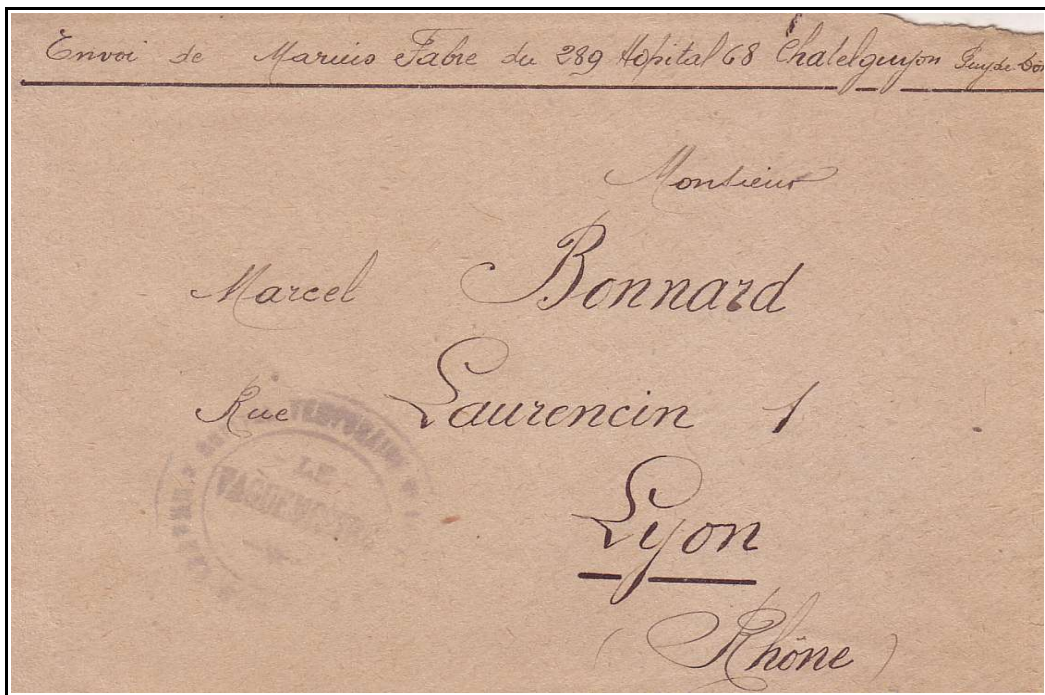 Envoi de Marius Fabre du 289 Hôpital 68 Chatelguyon Puy-de-Dôm
Monsieur
Marcel Bonnard
Rue Laurencin 1
Lyon
(Rhône)
TEMPORAIRE
LE
VAGUEMESTRE